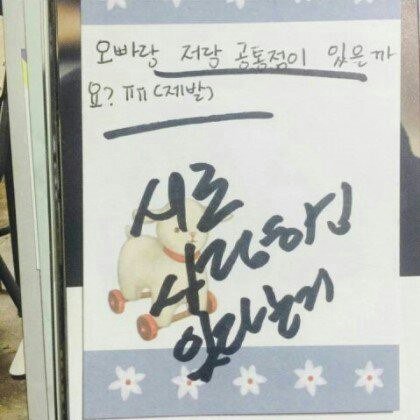 오빠랑 저랑 공통점이 있을까
요? ㅠㅠ (제발)
서로
사랑하고
있다는거